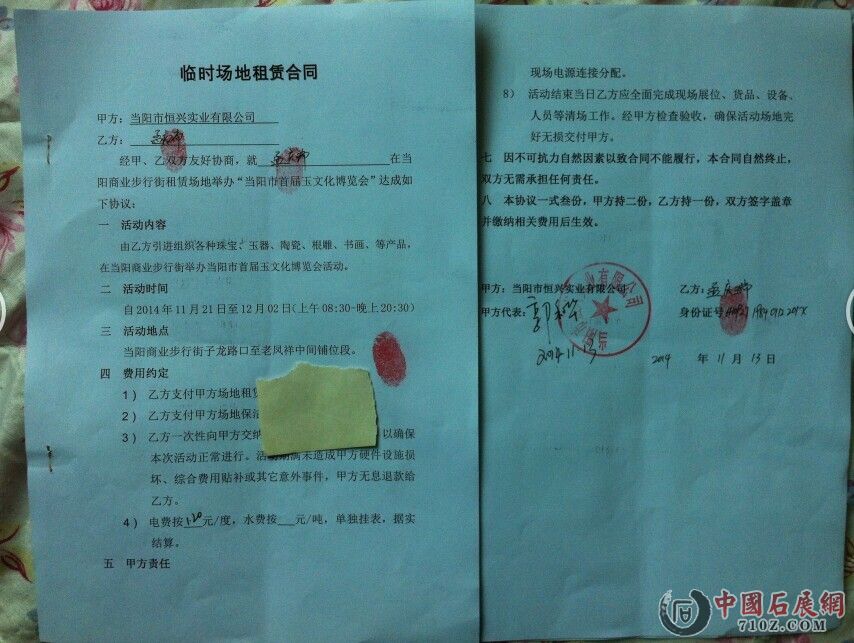 临时场地租赁合同
甲方：当阳市恒兴实业有限公司
乙方：
经甲、乙双方友好协商，就 在当
阳商业步行街租赁场地举办“当阳市首届玉文化博览会”达成如
下协议：
一 活动内容
由乙方引进组织各种珠宝、玉器、陶瓷、根雕、书画、等产品，
在当阳商业步行街举办当阳市首届玉文化博览会活动。
二 活动时间
自2014年11月21日至12月02日(上午08:30-晚上20:30)
三 活动地点
当阳商业步行街子龙路口至老凤祥中间铺位段。
四 费用约定
1） 乙方支付甲方场地租赁
2） 乙方支付甲方场地保洁
3） 乙方一次性向甲方交纳 以确保
本次活动正常进行。活动期满未造成甲方硬件设施损
坏、综合费用贴补或其它意外事件，甲方无息退款给
乙方。
4） 电费按1.20元/度，水费按___元/吨，单独挂表，据实
结算。
五 甲方责任
现场电源连接分配。
8） 活动结束当日乙方应全面完成现场展位、货品、设备、
人员等清场工作。经甲方检查验收，确保活动场地完
好无损交付甲方。
七 因不可抗力自然因素以致合同不能履行，本合同自然终止，
双方无需承担任何责任。
八 本协议一式叁份，甲方持二份，乙方持一份，双方签字盖章
并缴纳相关费用后生效。
甲方：当阳市恒兴实业有限公司 乙方：
甲方代表： 身份证号
2014.11.13 2014 年 11 月 13 日
中國石展網
710Z.COM